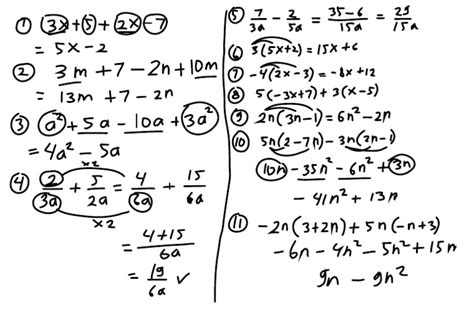 ① 3x + 5 + 2x - 7
= 5x - 2
② 3m + 7 - 2n + 10m
= 13m + 7 - 2n
③ a² + 5a - 10a + 3a²
= 4a² - 5a
④ 2/3a + 5/2a = 4/6a + 15/6a
x2
x2
= 4+15/6a
= 19/6a ✓
⑤ 7/3a - 2/5a = 35-6/15a = 29/15a
⑥ 3(5x+2) = 15x + 6
⑦ -4(2x-3) = -8x + 12
⑧ 5(-3x+7) + 3(x-5)
⑨ 2n(3n-1) = 6n² - 2n
⑩ 5n(2-7n) - 3n(2n-1)
10n - 35n² - 6n² + 3n
- 41n² + 13n
⑪ -2n(3+2n) + 5n(-n+3)
-6n - 4n² - 5n² + 15n
9n - 9n²